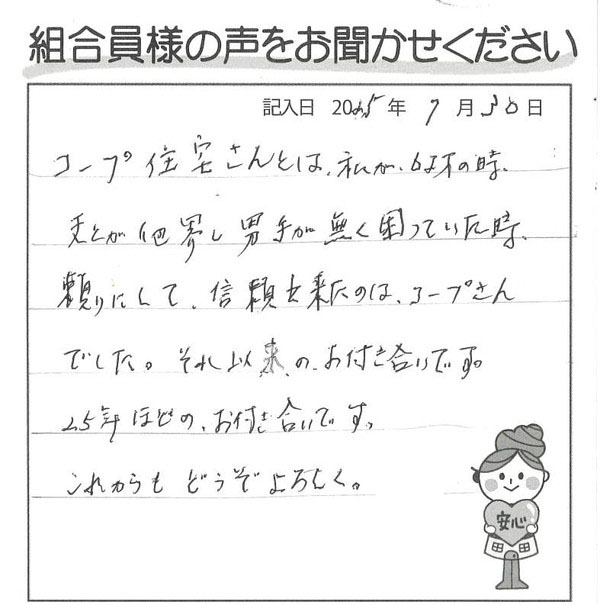 組合員様の声をお聞かせください
記入日 2025年 7月 30日
コープ住宅さんとは、私が、60才の時、
夫が他界し男手が無く困っていた時、
頼りにして、信頼出来たのは、コープさん
でした。それ以来の、お付き合いです。
25年ほどの、お付き合いです。
これからも どうぞよろしく。
安心